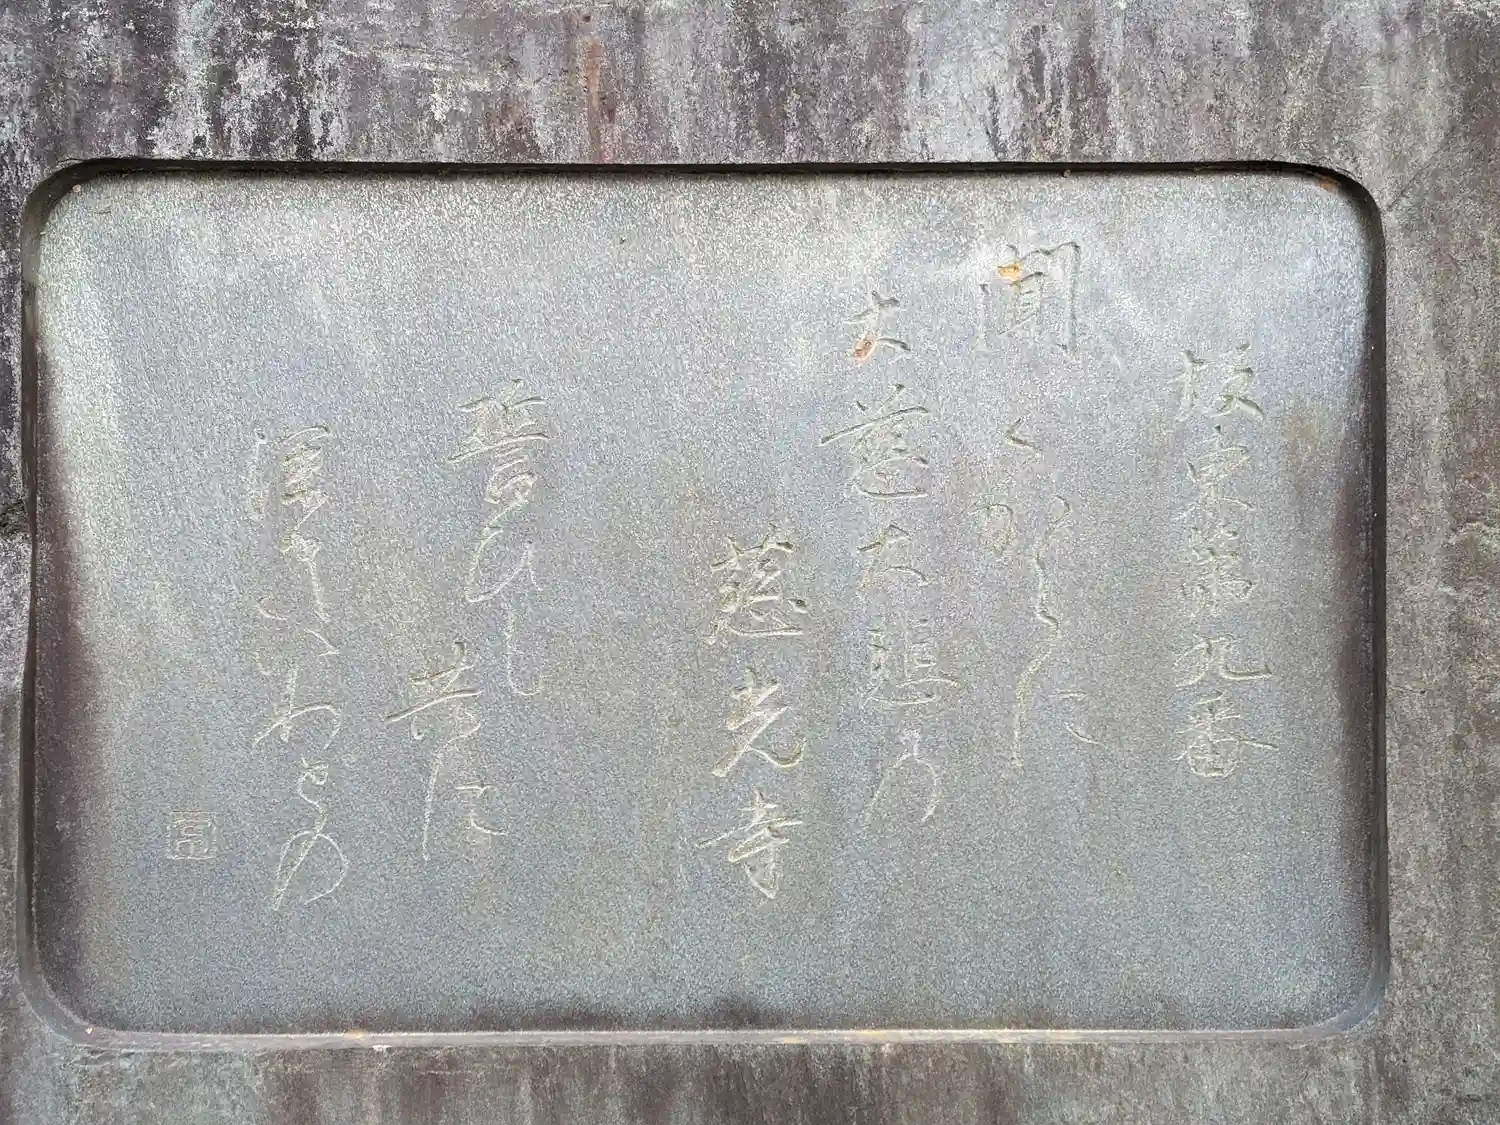 坂東第九番
聞くからに
大慈大悲の
慈光寺
誓ひも
共に
深きいわどの